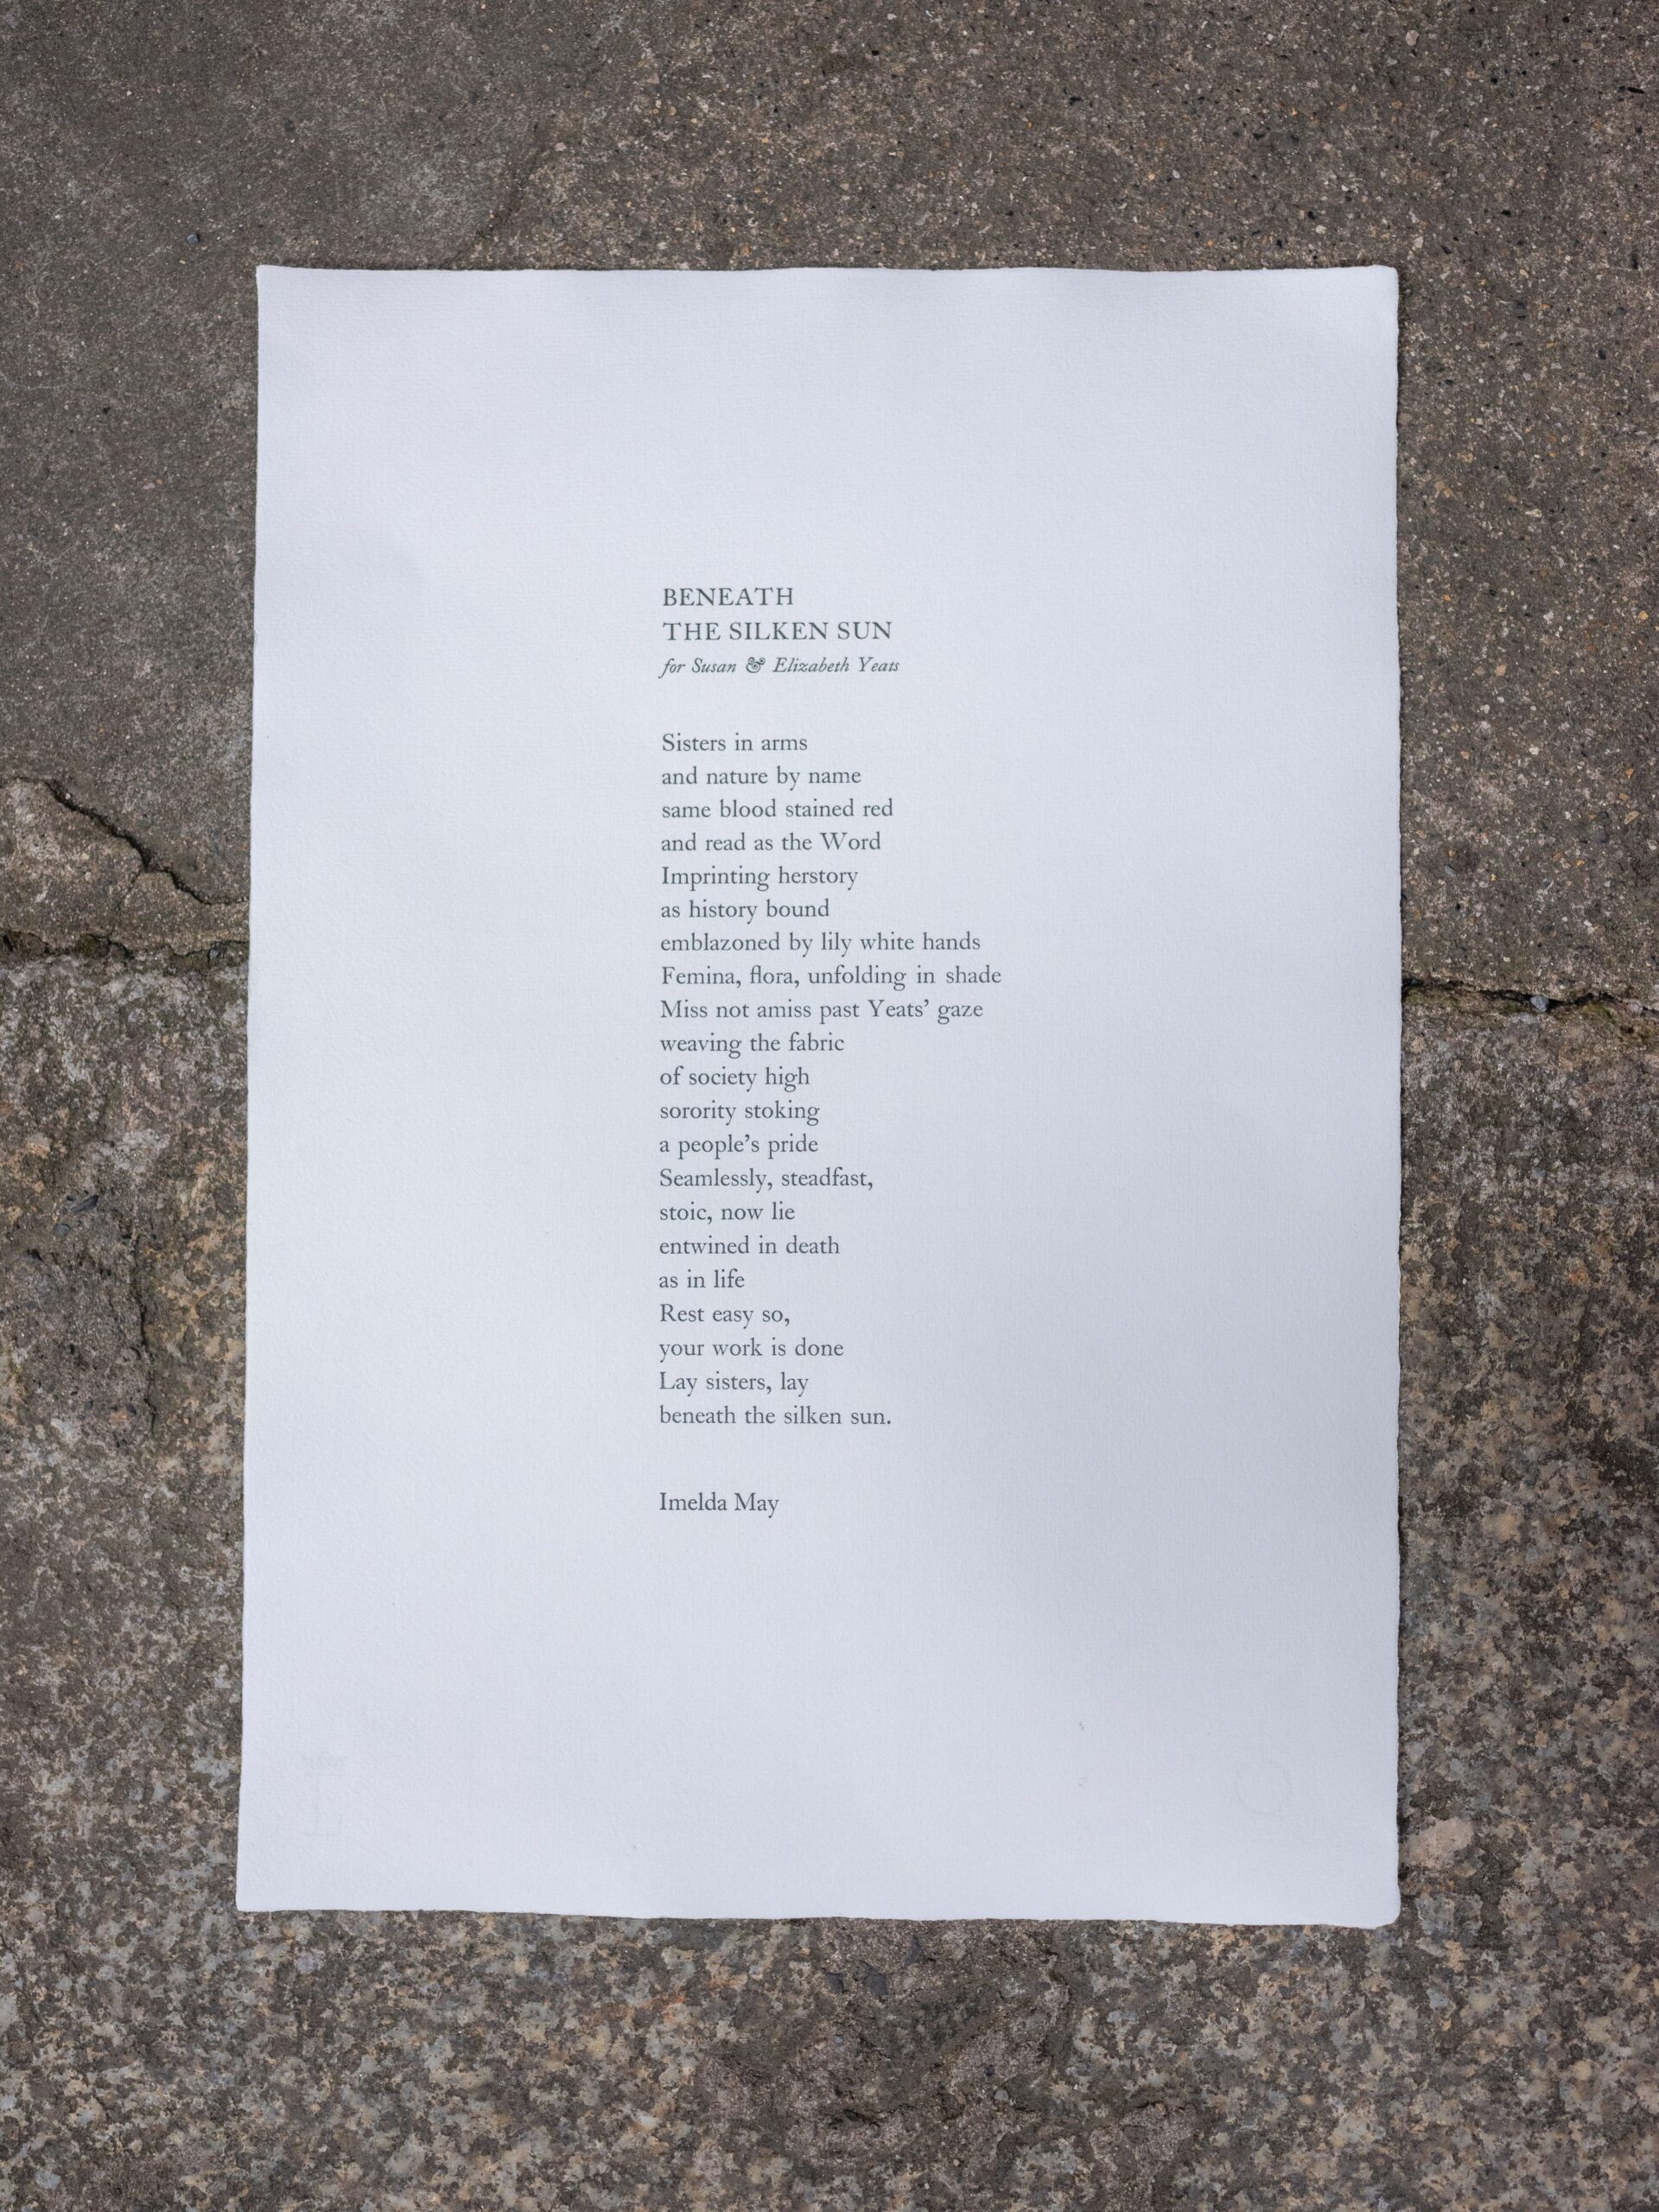 BENEATH
THE SILKEN SUN
for Susan & Elizabeth Yeats
Sisters in arms
and nature by name
same blood stained red
and read as the Word
Imprinting herstory
as history bound
emblazoned by lily white hands
Femina, flora, unfolding in shade
Miss not amiss past Yeats’ gaze
weaving the fabric
of society high
sorority stoking
a people’s pride
Seamlessly, steadfast,
stoic, now lie
entwined in death
as in life
Rest easy so,
your work is done
Lay sisters, lay
beneath the silken sun.
Imelda May